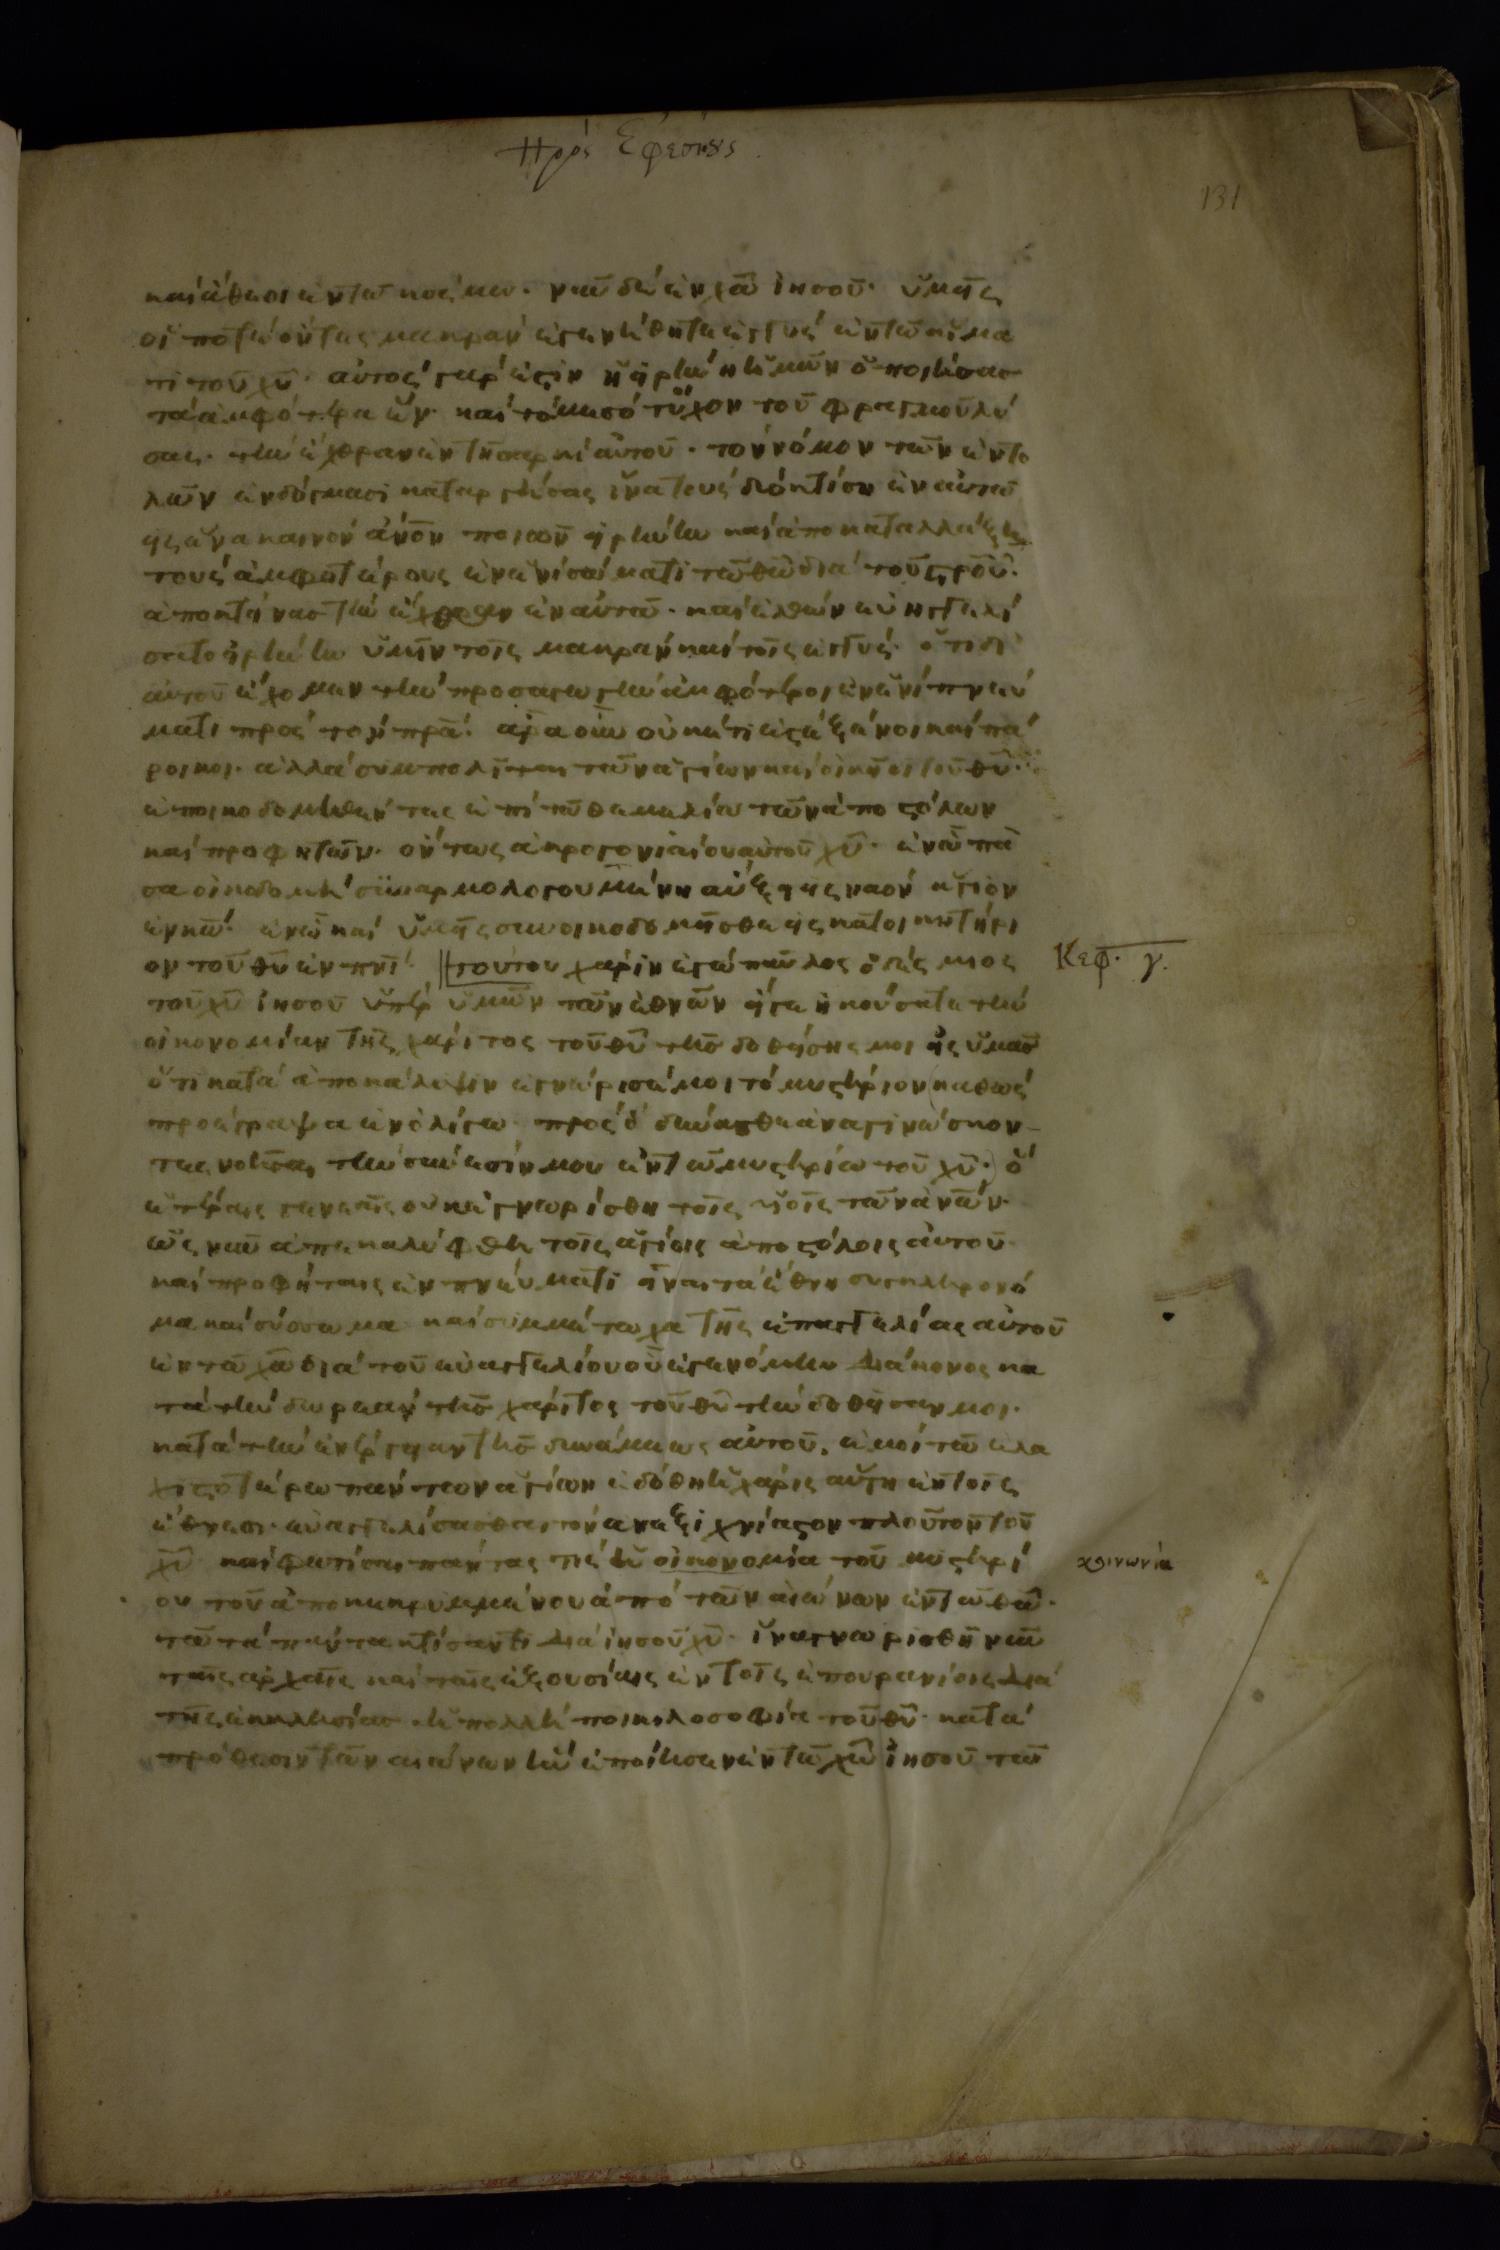 Πρὸς Ἐφεσίους
131
καὶ ἄθεοι ἐν τῶ κόσμω· νυνὶ δὲ ἐν χῶ ἰησοῦ· ὑμεῖς
οἵ ποτε ὄντες μακρὰν ἐγενήθητε ἐγγὺς ἐν τῶ αἵμα
τι τοῦ χυ· αὐτὸς γάρ ἐστιν ἡ εἰρήνη ἡμῶν ὁ ποιήσας
τὰ ἀμφότερα ἕν· καὶ τὸ μεσότοιχον τοῦ φραγμοῦ λύ
σας· τὴν ἔχθραν ἐν τῆ σαρκὶ αὐτοῦ· τὸν νόμον τῶν ἐντο
λῶν ἐν δόγμασι καταργήσας ἵνα τοὺς δύο κτίση ἐν αὐτῶ
εἰς ἕνα καινὸν ἄνον ποιῶν εἰρήνην καὶ ἀποκαταλλάξη
τοὺς ἀμφοτέρους ἐν ἑνὶ σώματι τῶ θῶ διὰ τοῦ στρου·
ἀποκτείνας τὴν ἔχθραν ἐν αὐτῶ· καὶ ἐλθὼν εὐηγγελί
σατο εἰρήνην ὑμῖν τοῖς μακρὰν καὶ τοῖς ἐγγύς· ὅτι δι
αὐτοῦ ἔχομεν τὴν προσαγωγὴν ἀμφότεροι ἐν ἑνὶ πνεύ
ματι πρὸς τὸν πρα· ἄρα οὖν οὐκέτι ἐστὲ ξένοι καὶ πά
ροικοι· ἀλλὰ συμπολῖται τῶν ἁγίων καὶ οἰκεῖοι τοῦ θυ·
ἐποικοδομηθέντες ἐπὶ τῶ θεμελίω τῶν ἀποστόλων
καὶ προφητῶν· ὄντος ἀκρογωνιαίου αὐτοῦ χυ· ἐν ὧ πᾶ
σα οἰκοδομὴ συναρμολογουμένη αὔξει εἰς ναὸν ἅγιον
ἐν κω· ἐν ὧ καὶ ὑμεῖς συνοικοδομεῖσθε εἰς κατοικητήρι
ον τοῦ θυ ἐν πνι· τούτου χάριν ἐγὼ παῦλος ὁ δέσμιος
Κεφ. γ.
τοῦ χυ ἰησοῦ ὑπὲρ ὑμῶν τῶν ἐθνῶν εἴγε ἠκούσατε τὴν
οἰκονομίαν τῆς χάριτος τοῦ θυ τῆς δοθείσης μοι εἰς ὑμᾶς
ὅτι κατὰ ἀποκάλυψιν ἐγνώρισέ μοι τὸ μυστήριον (καθὼς
προέγραψα ἐν ὀλίγω πρὸς ὃ δύνασθε ἀναγινώσκον
τες νοῆσαι τὴν σύνεσίν μου ἐν τῶ μυστηρίω τοῦ χυ·) ὃ
ἑτέραις γενεαῖς οὐκ ἐγνωρίσθη τοῖς υἱοῖς τῶν ἀνων·
ὡς νῦν ἀπεκαλύφθη τοῖς ἁγίοις ἀποστόλοις αὐτοῦ
καὶ προφήταις ἐν πνεύματι εἶναι τὰ ἔθνη συγκληρονό
μα καὶ σύσσωμα καὶ συμμέτοχα τῆς ἐπαγγελίας αὐτοῦ
ἐν τῶ χω διὰ τοῦ εὐαγγελίου οὗ ἐγενόμην διάκονος κα
τὰ τὴν δωρεὰν τῆς χάριτος τοῦ θυ τὴν δοθεῖσαν μοι·
κατὰ τὴν ἐνέργειαν τῆς δυνάμεως αὐτοῦ. ἐμοὶ τῶ ἐλα
χιστοτέρω πάντων ἁγίων ἐδόθη ἡ χάρις αὕτη ἐν τοῖς
ἔθνεσι· εὐαγγελίσασθαι τὸν ἀνεξιχνίαστον πλοῦτον τοῦ
χυ καὶ φωτίσαι πάντας τίς ἡ οἰκονομία τοῦ μυστηρί
κοινωνία
ου τοῦ ἀποκεκρυμμένου ἀπὸ τῶν αἰώνων ἐν τῶ θω·
τῶ τὰ πάντα κτίσαντι διὰ ἰησοῦ χυ· ἵνα γνωρισθῆ νῦν
ταῖς ἀρχαῖς καὶ ταῖς ἐξουσίαις ἐν τοῖς ἐπουρανίοις διὰ
τῆς ἐκκλησίας ἡ πολλὴ ποικιλοσοφία τοῦ θυ· κατὰ
πρόθεσιν τῶν αἰώνων ἣν ἐποίησεν ἐν τῶ χω ἰησοῦ τῶ